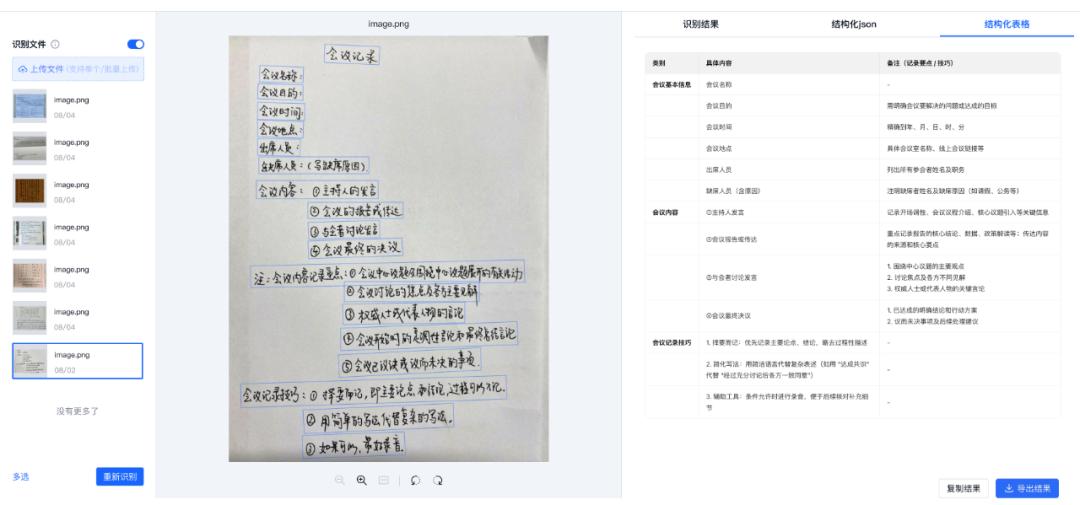 识别文件
上传文件 (支持单个/批量上传)
image.png
08/04
image.png
08/04
image.png
08/04
image.png
08/04
image.png
08/04
image.png
08/04
image.png
08/02
没有更多了
多选
重新识别
image.png
会议记录
会议名称：
会议目的：
会议时间：
会议地点：
出席人员：
缺席人员：(写缺席原因)
会议内容：①主持人的发言
②会议的报告或传达
③与会者讨论发言
④会议最终的决议
注：会议内容记录重点：①会议中心议题及围绕中心议题展开的有关活动
②会议讨论的焦点及各方主要见解
③权威人士或代表人物的言论
④会议开始时的定调性言论和最终总结言论
⑤会议已议决或议而未决的事项
会议记录技巧：①择要而记，即主要论点和结论，过程可以不记.
②用简单的写法代替复杂的写法.
③如果可以，最好录音.
识别结果
结构化json
结构化表格
类别 具体内容 备注（记录要点 / 技巧）
会议基本信息 会议名称 -
会议目的 需明确会议要解决的问题或达成的目标
会议时间 精确到年、月、日、时、分
会议地点 具体会议室名称、线上会议链接等
出席人员 列出所有参会者姓名及职务
缺席人员（含原因） 注明缺席者姓名及缺席原因（如请假、公务等）
会议内容 ①主持人发言 记录开场调性、会议议程介绍、核心议题引入等关键信息
②会议报告或传达 重点记录报告的核心结论、数据、政策解读等；传达内容
的来源和核心要点
③与会者讨论发言 1. 围绕中心议题的主要观点
2. 讨论焦点及各方不同见解
3. 权威人士或代表人物的关键言论
④会议最终决议 1. 已达成的明确结论和行动方案
2. 议而未决事项及后续处理建议
会议记录技巧 1. 择要而记：优先记录主要论点、结论，略去过程性描述 -
2. 简化写法：用简洁语言代替复杂表述（如用 "达成共识"
代替 "经过充分讨论后各方一致同意"） -
3. 辅助工具：条件允许时进行录音，便于后续核对补充细
节 -
复制结果
导出结果